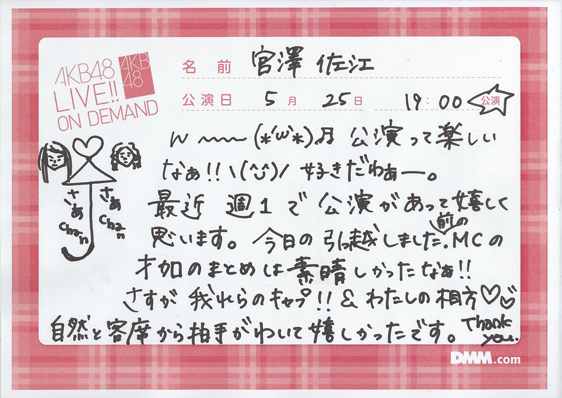 AKB48
LIVE!!
ON DEMAND
AKB
48
名前 宮澤 佐江
公演日 5月 25日 19:00 公演
w 〜〜 (*'ω'*)♫ 公演って楽しい
なぁ!! \(^^)/ 好きだわぁー。
最近 週1で公演があって嬉しく
思います。今日の引越しました。前のMCの
才加のまとめは素晴しかったなぁ!!
さすが 我れらのキャプ!! & わたしの相方♡♡
自然と客席から拍手がわいて嬉しかったです。Thank
you.
さぁ
chan
さぁ
chan
DMM.com